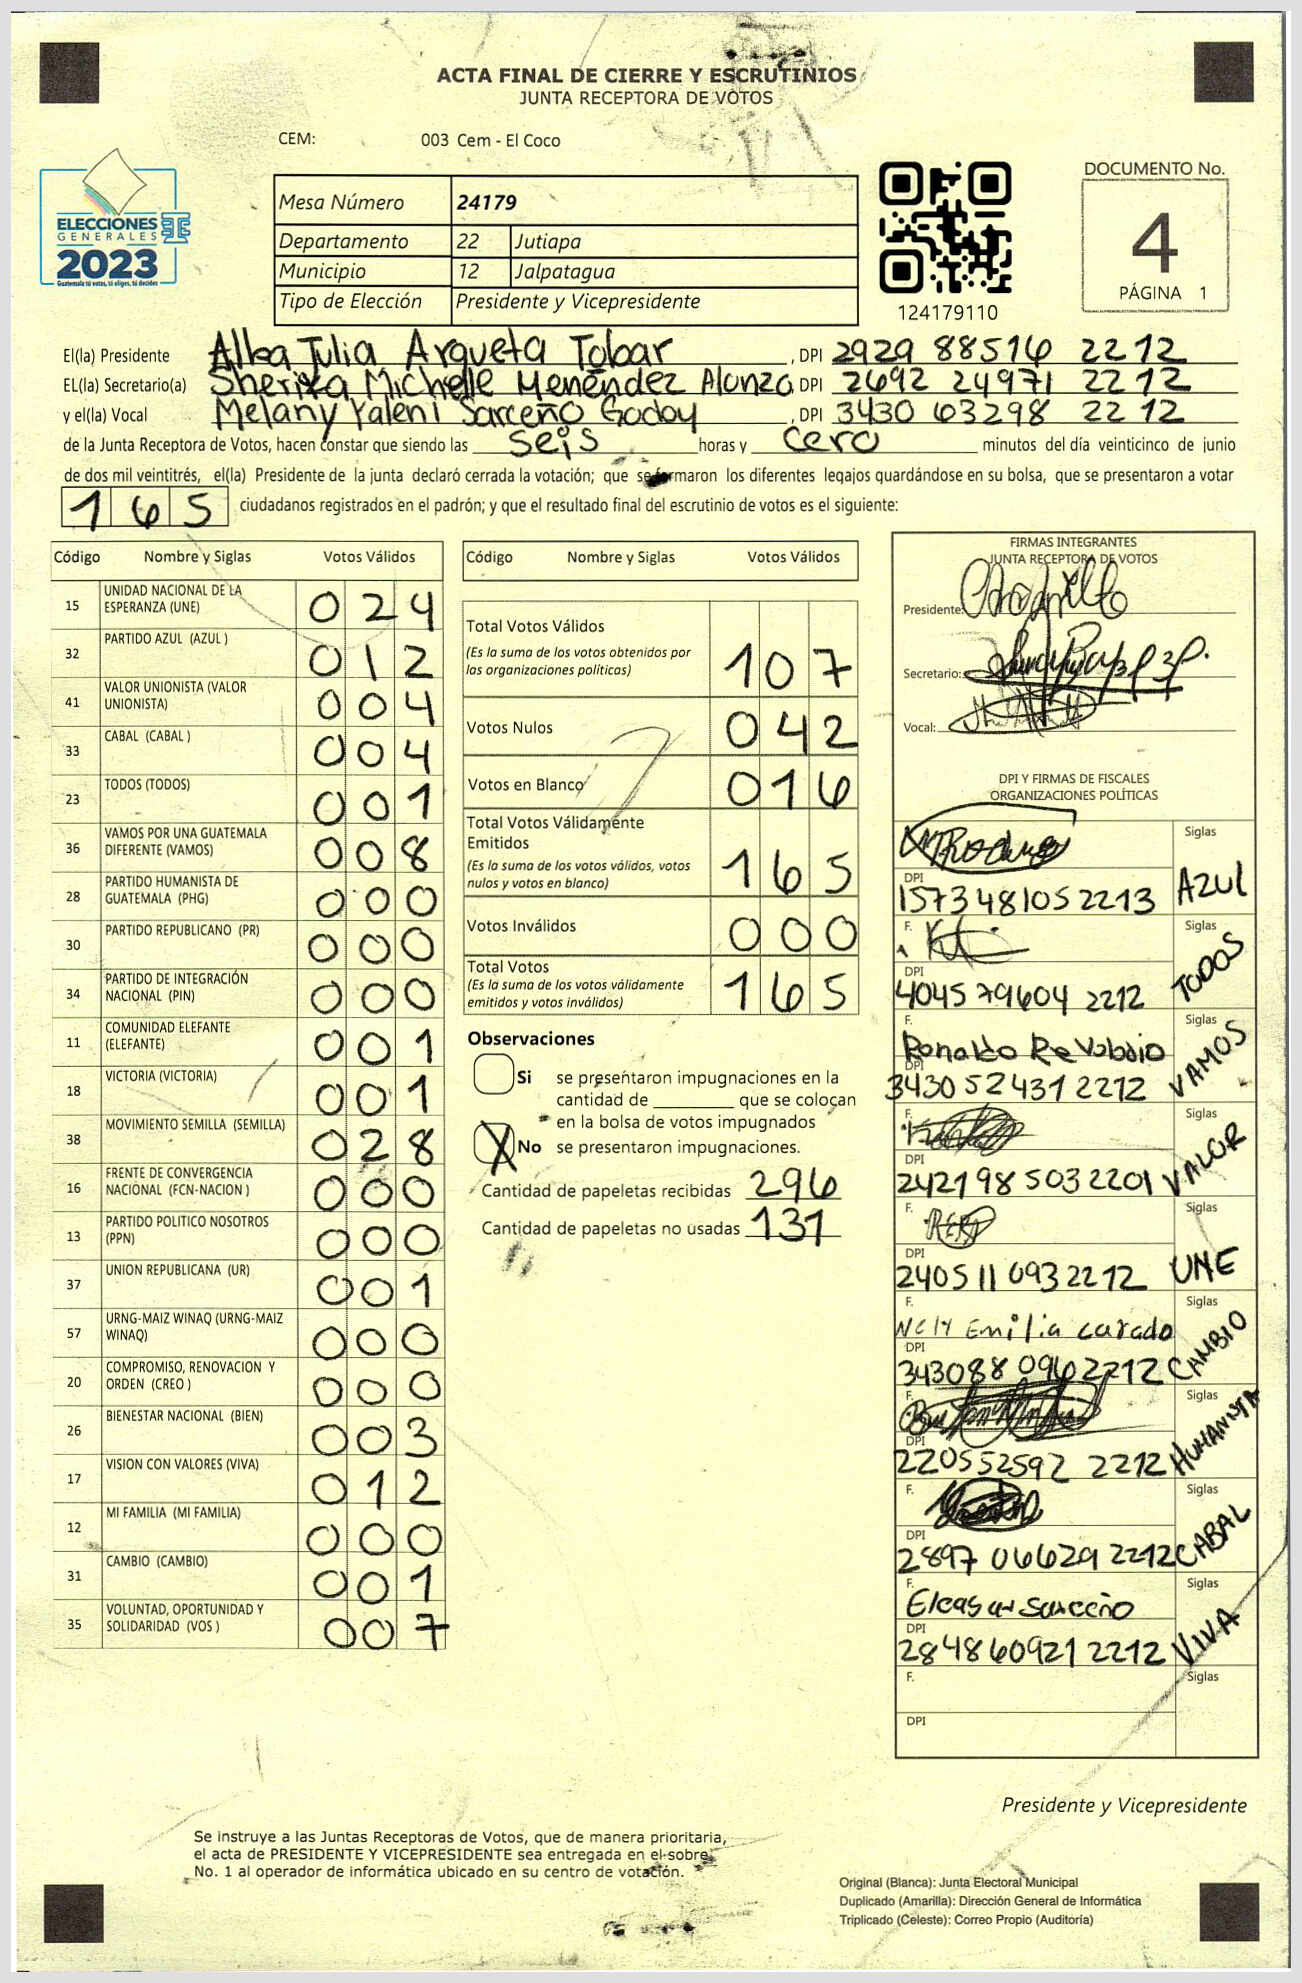 ACTA FINAL DE CIERRE Y ESCRUTINIOS
JUNTA RECEPTORA DE VOTOS
CEM: 003 Cem - El Coco
ELECCIONES
GENERALES
2023
Guatemala tú votas, tú eliges, tú decides
Mesa Número 24179
Departamento 22 Jutiapa
Municipio 12 Jalpatagua
Tipo de Elección Presidente y Vicepresidente
124179110
DOCUMENTO No.
4
PÁGINA 1
El(la) Presidente Alba Julia Argueta Tobar, DPI 2929 88516 2212
EL(la) Secretario(a) Sherika Michelle Menéndez Alonzo, DPI 2692 24971 2212
y el(la) Vocal Melany Yaleni Sarceño Godoy, DPI 3430 63298 2212
de la Junta Receptora de Votos, hacen constar que siendo las seis horas y cero minutos del día veinticinco de junio
de dos mil veintitrés, el(la) Presidente de la junta declaró cerrada la votación; que se formaron los diferentes legajos quardándose en su bolsa, que se presentaron a votar
165 ciudadanos registrados en el padrón; y que el resultado final del escrutinio de votos es el siguiente:
Código Nombre y Siglas Votos Válidos
15 UNIDAD NACIONAL DE LA ESPERANZA (UNE) 024
32 PARTIDO AZUL (AZUL ) 012
41 VALOR UNIONISTA (VALOR UNIONISTA) 004
33 CABAL (CABAL ) 004
23 TODOS (TODOS) 001
36 VAMOS POR UNA GUATEMALA DIFERENTE (VAMOS) 008
28 PARTIDO HUMANISTA DE GUATEMALA (PHG) 000
30 PARTIDO REPUBLICANO (PR) 000
34 PARTIDO DE INTEGRACIÓN NACIONAL (PIN) 000
11 COMUNIDAD ELEFANTE (ELEFANTE) 001
18 VICTORIA (VICTORIA) 001
38 MOVIMIENTO SEMILLA (SEMILLA) 028
16 FRENTE DE CONVERGENCIA NACIONAL (FCN-NACION ) 000
13 PARTIDO POLITICO NOSOTROS (PPN) 000
37 UNION REPUBLICANA (UR) 001
57 URNG-MAIZ WINAQ (URNG-MAIZ WINAQ) 000
20 COMPROMISO, RENOVACION Y ORDEN (CREO ) 000
26 BIENESTAR NACIONAL (BIEN) 003
17 VISION CON VALORES (VIVA) 012
12 MI FAMILIA (MI FAMILIA) 000
31 CAMBIO (CAMBIO) 001
35 VOLUNTAD, OPORTUNIDAD Y SOLIDARIDAD (VOS ) 007
Código Nombre y Siglas Votos Válidos
Total Votos Válidos 107
(Es la suma de los votos obtenidos por
las organizaciones políticas)
Votos Nulos 042
Votos en Blanco 016
Total Votos Válidamente
Emitidos 165
(Es la suma de los votos válidos, votos
nulos y votos en blanco)
Votos Inválidos 000
Total Votos 165
(Es la suma de los votos válidamente
emitidos y votos inválidos)
Observaciones
Si se presentaron impugnaciones en la
cantidad de ________ que se colocan
en la bolsa de votos impugnados
X No se presentaron impugnaciones.
Cantidad de papeletas recibidas 296
Cantidad de papeletas no usadas 131
FIRMAS INTEGRANTES
JUNTA RECEPTORA DE VOTOS
Presidente:
Secretario:
Vocal:
DPI Y FIRMAS DE FISCALES
ORGANIZACIONES POLÍTICAS
Siglas AZUL
DPI 1573 48105 2213
F. Siglas TODOS
DPI 4045 79604 2212
F. Ronaldo Siglas VAMOS
DPI 3430 52431 2212
F. Siglas VALOR
DPI 2421 98503 2201
F. Siglas UNE
DPI 2405 11093 2212
F. Emilia Siglas CAMBIO
DPI 343088 0962212
F. Siglas HUMANISTA
DPI 2205 52592 2212
F. Siglas CABAL
DPI 2897 06629 2212
F. Sarceño Siglas VIVA
DPI 2848 60921 2212
F. Siglas
DPI
Presidente y Vicepresidente
Se instruye a las Juntas Receptoras de Votos, que de manera prioritaria,
el acta de PRESIDENTE Y VICEPRESIDENTE sea entregada en el sobre
No. 1 al operador de informática ubicado en su centro de votación.
Original (Blanca): Junta Electoral Municipal
Duplicado (Amarilla): Dirección General de Informática
Triplicado (Celeste): Correo Propio (Auditoría)